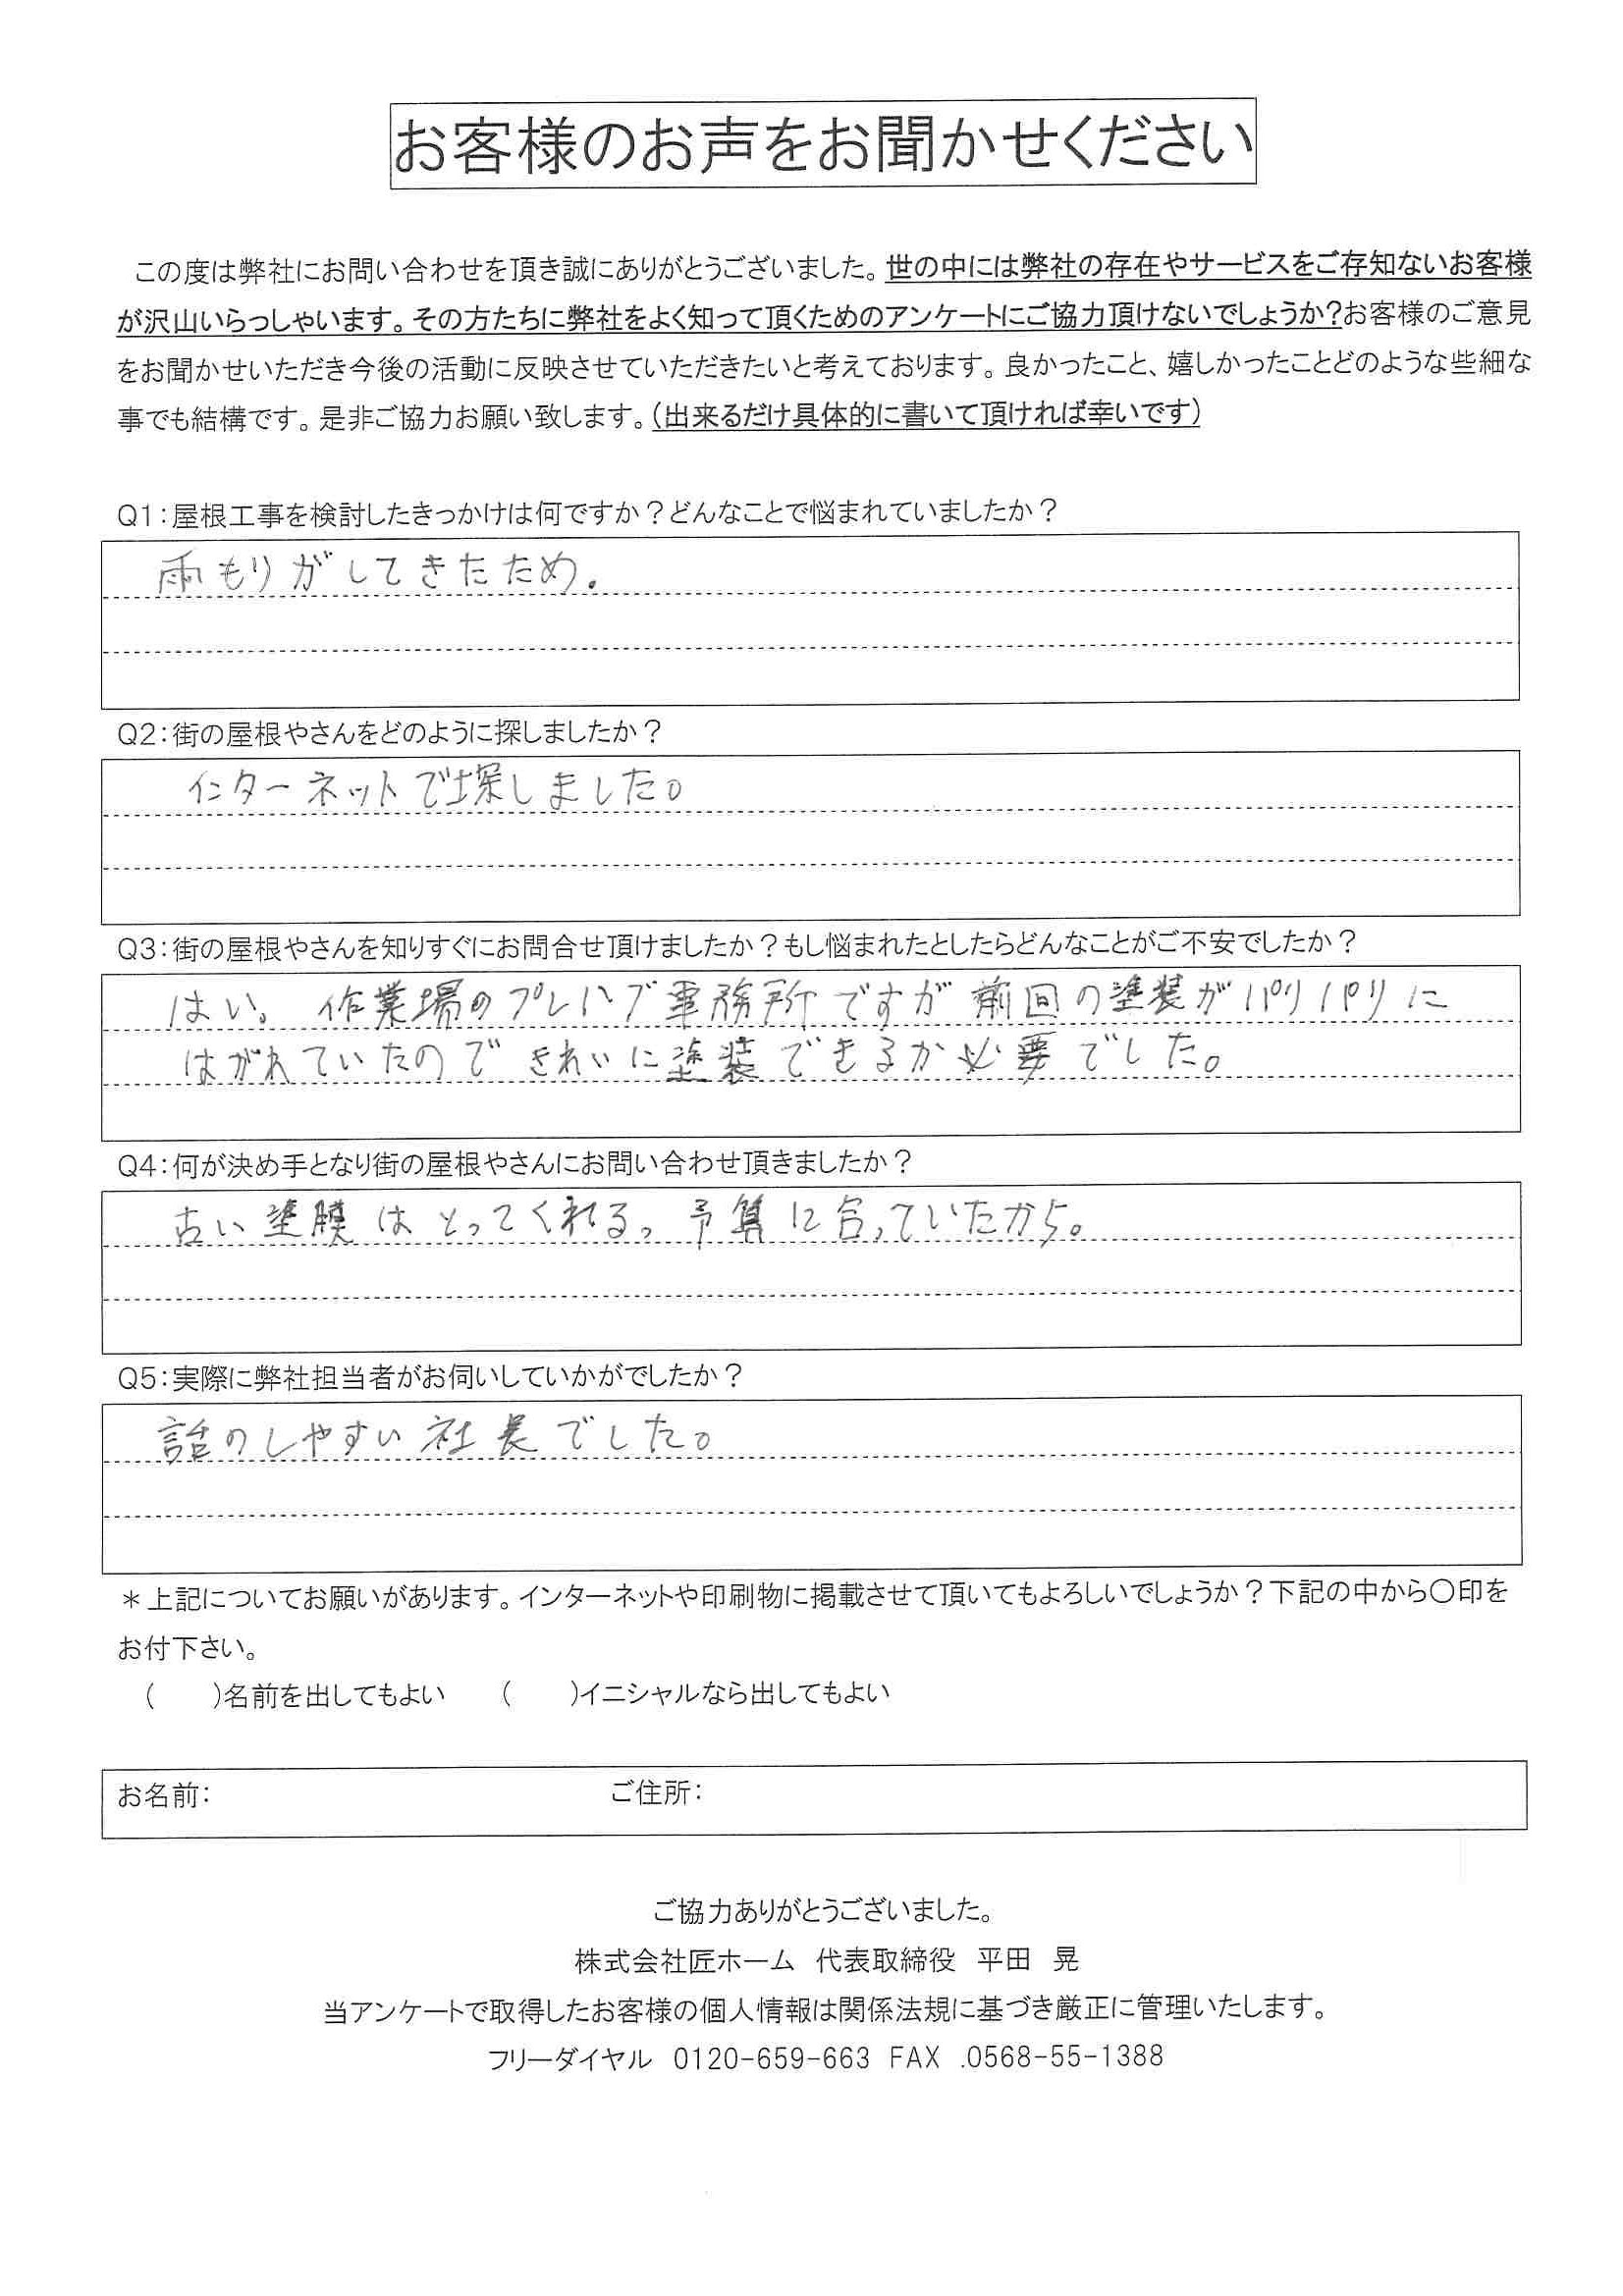 お客様のお声をお聞かせください
この度は弊社にお問い合わせを頂き誠にありがとうございました。世の中には弊社の存在やサービスをご存知ないお客様
が沢山いらっしゃいます。その方たちに弊社をよく知って頂くためのアンケートにご協力頂けないでしょうか?お客様のご意見
をお聞かせいただき今後の活動に反映させていただきたいと考えております。良かったこと、嬉しかったことどのような些細な
事でも結構です。是非ご協力お願い致します。(出来るだけ具体的に書いて頂ければ幸いです)
Q1:屋根工事を検討したきっかけは何ですか?どんなことで悩まれていましたか?
雨もりがしてきたため.
Q2:街の屋根やさんをどのように探しましたか?
インターネットで探しました。
Q3:街の屋根やさんを知りすぐにお問合せ頂けましたか?もし悩まれたとしたらどんなことがご不安でしたか?
はい。作業場のプレハブ事務所ですが前回の塗装がパリパリに
はがれていたのできれいに塗装できるか必要でした。
Q4:何が決め手となり街の屋根やさんにお問い合わせ頂きましたか?
古い塗膜はとってくれる。予算に合っていたから。
Q5:実際に弊社担当者がお伺いしていかがでしたか?
話のしやすい社長でした。
*上記についてお願いがあります。インターネットや印刷物に掲載させて頂いてもよろしいでしょうか?下記の中から〇印を
お付下さい。
(　　)名前を出してもよい　(　　)イニシャルなら出してもよい
お名前:　ご住所:
ご協力ありがとうございました。
株式会社匠ホーム 代表取締役 平田 晃
当アンケートで取得したお客様の個人情報は関係法規に基づき厳正に管理いたします。
フリーダイヤル 0120-659-663 FAX .0568-55-1388